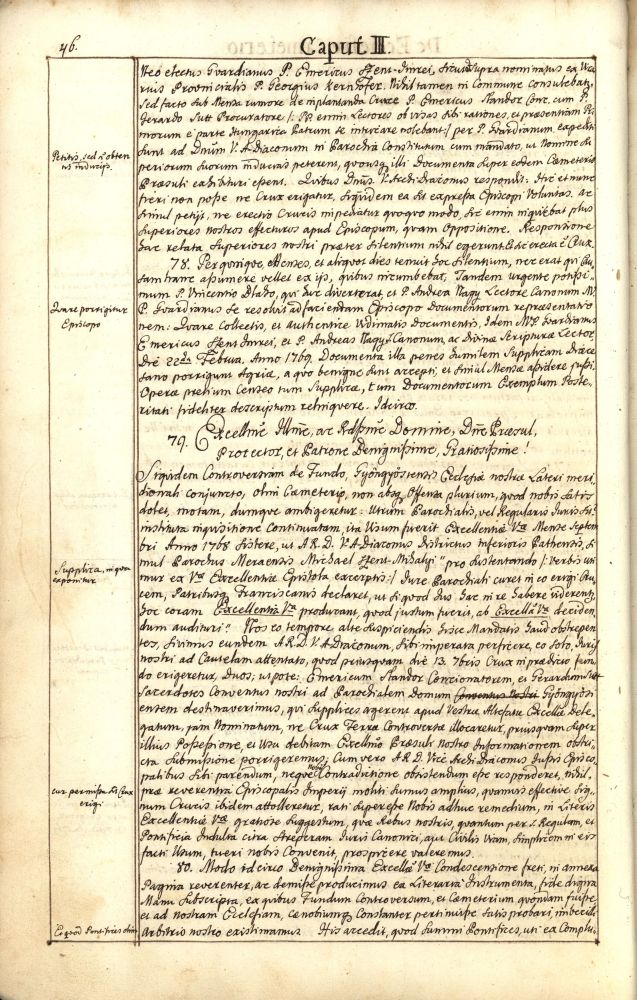 46.
Caput III
Neo electus Gvardianus P. Emericus Szent-Imrei, sicut Supra nominatus ex Va-
rius Provincialis P. Georgius Kernhofer. Nihil tamen in Commune consulebatur,
Sed facto sub Mensa rumore de implantanda Cruce P. Emericus Nandor Conc. cum P.
Gerardo Sutt Procuratore /: NB. enim Lectores ob visas sibi rationes, et praesentiam
morum è parte Hungarica Patrum se intricare nolebant :/ per P. Gvardianum expediti
sunt ad Dnum V. A. Diaconum in Parochia Constitutum cum mandato, ut Nomine Su-
Petitis, sed ñ obten-
tis induciis.
periorum suorum inducias peterent, quousq illi Documenta super eodem Caemeterio
Praesuli exhibituri essent. Quibus Dnus V. Archi Diaconus respondit: Hic et nunc
fieri non posse ne Crux erigatur, siquidem ea sit expressa Episcopi Voluntas. Ac
simul petijt, ne erectio Crucis impediatur quoquo modo, sic enim inquiebat plus
Superiores nostros effecturos apud Episcopum, quam Oppositione. Responsione
hac relata Superiores nostri praeter Silentium nihil egerunt. Et sic erecta ẽ Crux.
78. Per quinque Menses, et aliquot dies tenuit hoc Silentium, nec erat qui Cau-
sam hanc assumere vellet ex ijs, quibus incumbebat, Tandem urgente potissi-
mum P. Vincentio Blaho, qui huc diverterat, et P. Andrea Nagy Lectore Canonum
P. Gvardianus se resolvit ad faciendam Episcopo Documentorum repraesentatio-
Quare porrigitur
Episcopo
nem: Quare Collectis, et authentice Vidimatis Documentis, Idem Gvardianus
Emericus Szent Imrei, et P. Andreas Nagy SS. Canonum, ac Divinae Scripturae Lector,
Die 22da Februa. Anno 1769. Documenta illa penes humilem Supplicam Dioece-
sano porrigunt Agriae, a quo benigne sunt accepti, et simul Mensae assidere jussi.
Operae pretium Censeo tum Supplicae, tum Documentorum Exemplum Poste-
ritati fideliter descriptum relinquere. Idcirco.
79. Excellme Illme, ac Rdssme Domine, Dne Praesul,
Protector, et Patrone Benignissime, Gratiosissime!
Siquidem Controversiam de Fundo, Gyöngyösiensis Ecclesiae nostrae Lateri meri-
dionali conjuncto, olim Caemeterio, non absq Offensa plurium, quod nobis satis
dolet, motam, dumque ambigeretur: Utrum Parochialis, vel Regularis Juris sit:
instituta inquisitione Continuatam, ita Visum fuerit Excellentiae Vrae Mense Septem-
bri Anno 1768 sistere, ut A. R. D. V. A. Diaconus Districtus inferioris Pathensis, si-
mul Parochus Meraensis Michael Szent-Mihalyi "pro sustentando /: verbis uti-
Supplica, in qua
exponitur
mur ex Vrae Excellentiae Epistola excerptis :/ Jure Parochiali curet in eo erigi Cru-
cem, Patribusq Franciscanis declaret, ut si quod Jus hac in re habere viderentur,
hoc coram Excellentia Vra producant, quod justum fuerit, ab Excella Vra deciden-
dum audituri". Nos eo tempore alte suspiciendis hisce Mandatis haud obstrepen-
tes, sivimus eundem A. R. D. V. A. Diaconum, sibi imperata perficere, eo solo, Juris
nostri ad Cautelam attentato, quod priusquam die 13. 7bris Crux in praedicto fun-
do erigeretur, Duos, utpote: Emericum Nandor Concionatorem, et Gerardum Sutt
Sacerdotes Conventus nostri ad Parochialem Domum Conventus Nostri Gyöngyösi-
ensem destinaverimus, qui supplices agerent apud Vestrae Altefatae Excellae Dele-
gatum, jam Nominatum, ne Crux Terrae Controversae illocaretur, priusquam super
illius Possessione, et Usu debitam Excellmo Praesuli nostro Informationem obstri-
cta Submissione porrigeremus; Cum vero A. R. D. Vice Archi Diaconus Jussis Episco-
palibus sibi parendum, neque Nobis Contradictione obsistendum esse responderet, nihil
cur permissa sit Crux
erigi
prae reverentia Episcopalis Imperij moliti sumus amplius, quamvis effective Sig-
num Crucis ibidem attolleretur, rati superesse Nobis adhuc remedium, in Literis
Excellentiae Vrae gratiose suggestum, quae Rebus nostris, quantum per S. Regulam, et
Pontificia Indulta citra Streperam Juris Canonici, aut Civilis Viam, simplicem in eis
facti Usum, tueri nobis Convenit, prospicere valeremus.
80. Modo idcirco Benignissima Excellae Vrae Condescensione freti, in annexa
Pagina reverenter, ac demisse producimus ea Literaria Instrumenta, fide digna
Manu Subscripta, ex quibus Fundum Controversum, et Caemeterium quondam fuisse,
et ad nostram Ecclesiam, Caenobiumq Constanter pertinuisse satis probari, imbecilli
Et quod Pontifices
arbitrio nostro existimamus. His accedit, quod Summi Pontifices, uti ex Complu-